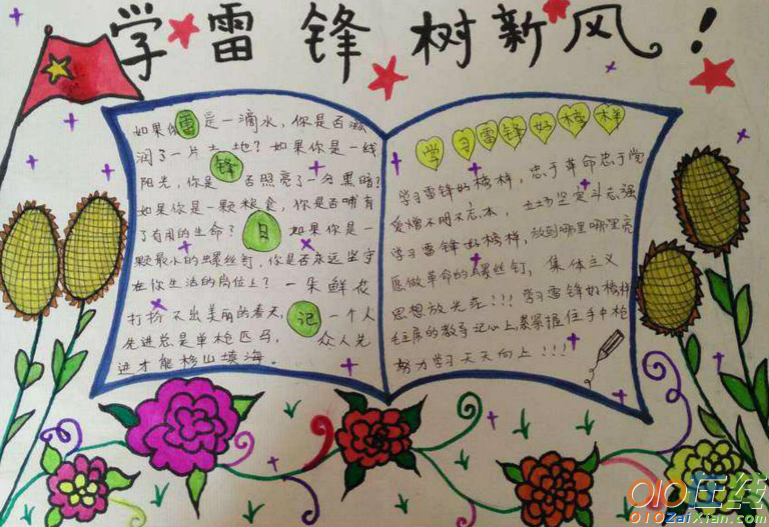 学雷锋树新风!
如果你是一滴水，你是否滋
润了一片土地？如果你是一线
阳光，你是否照亮了一分黑暗？
如果你是一颗粮食，你是否哺育
了有用的生命？如果你是一
颗最小的螺丝钉，你是否永远坚守
在你生活的岗位上？一朵鲜花
打扮不出美丽的春天，一个人
先进总是单枪匹马，众人先
进才能移山填海。
雷
锋
日
记
学习雷锋好榜样
学习雷锋好榜样，忠于革命忠于党
爱憎不明不忘本，立场坚定斗志强
学习雷锋好榜样，放到哪里哪里亮
愿做革命的螺丝钉，集体主义
思想放光芒！！！学习雷锋好榜样
毛主席的教导记心上，紧紧握住手中枪
努力学习天天向上！！！
010在线
010ZaiXian.com